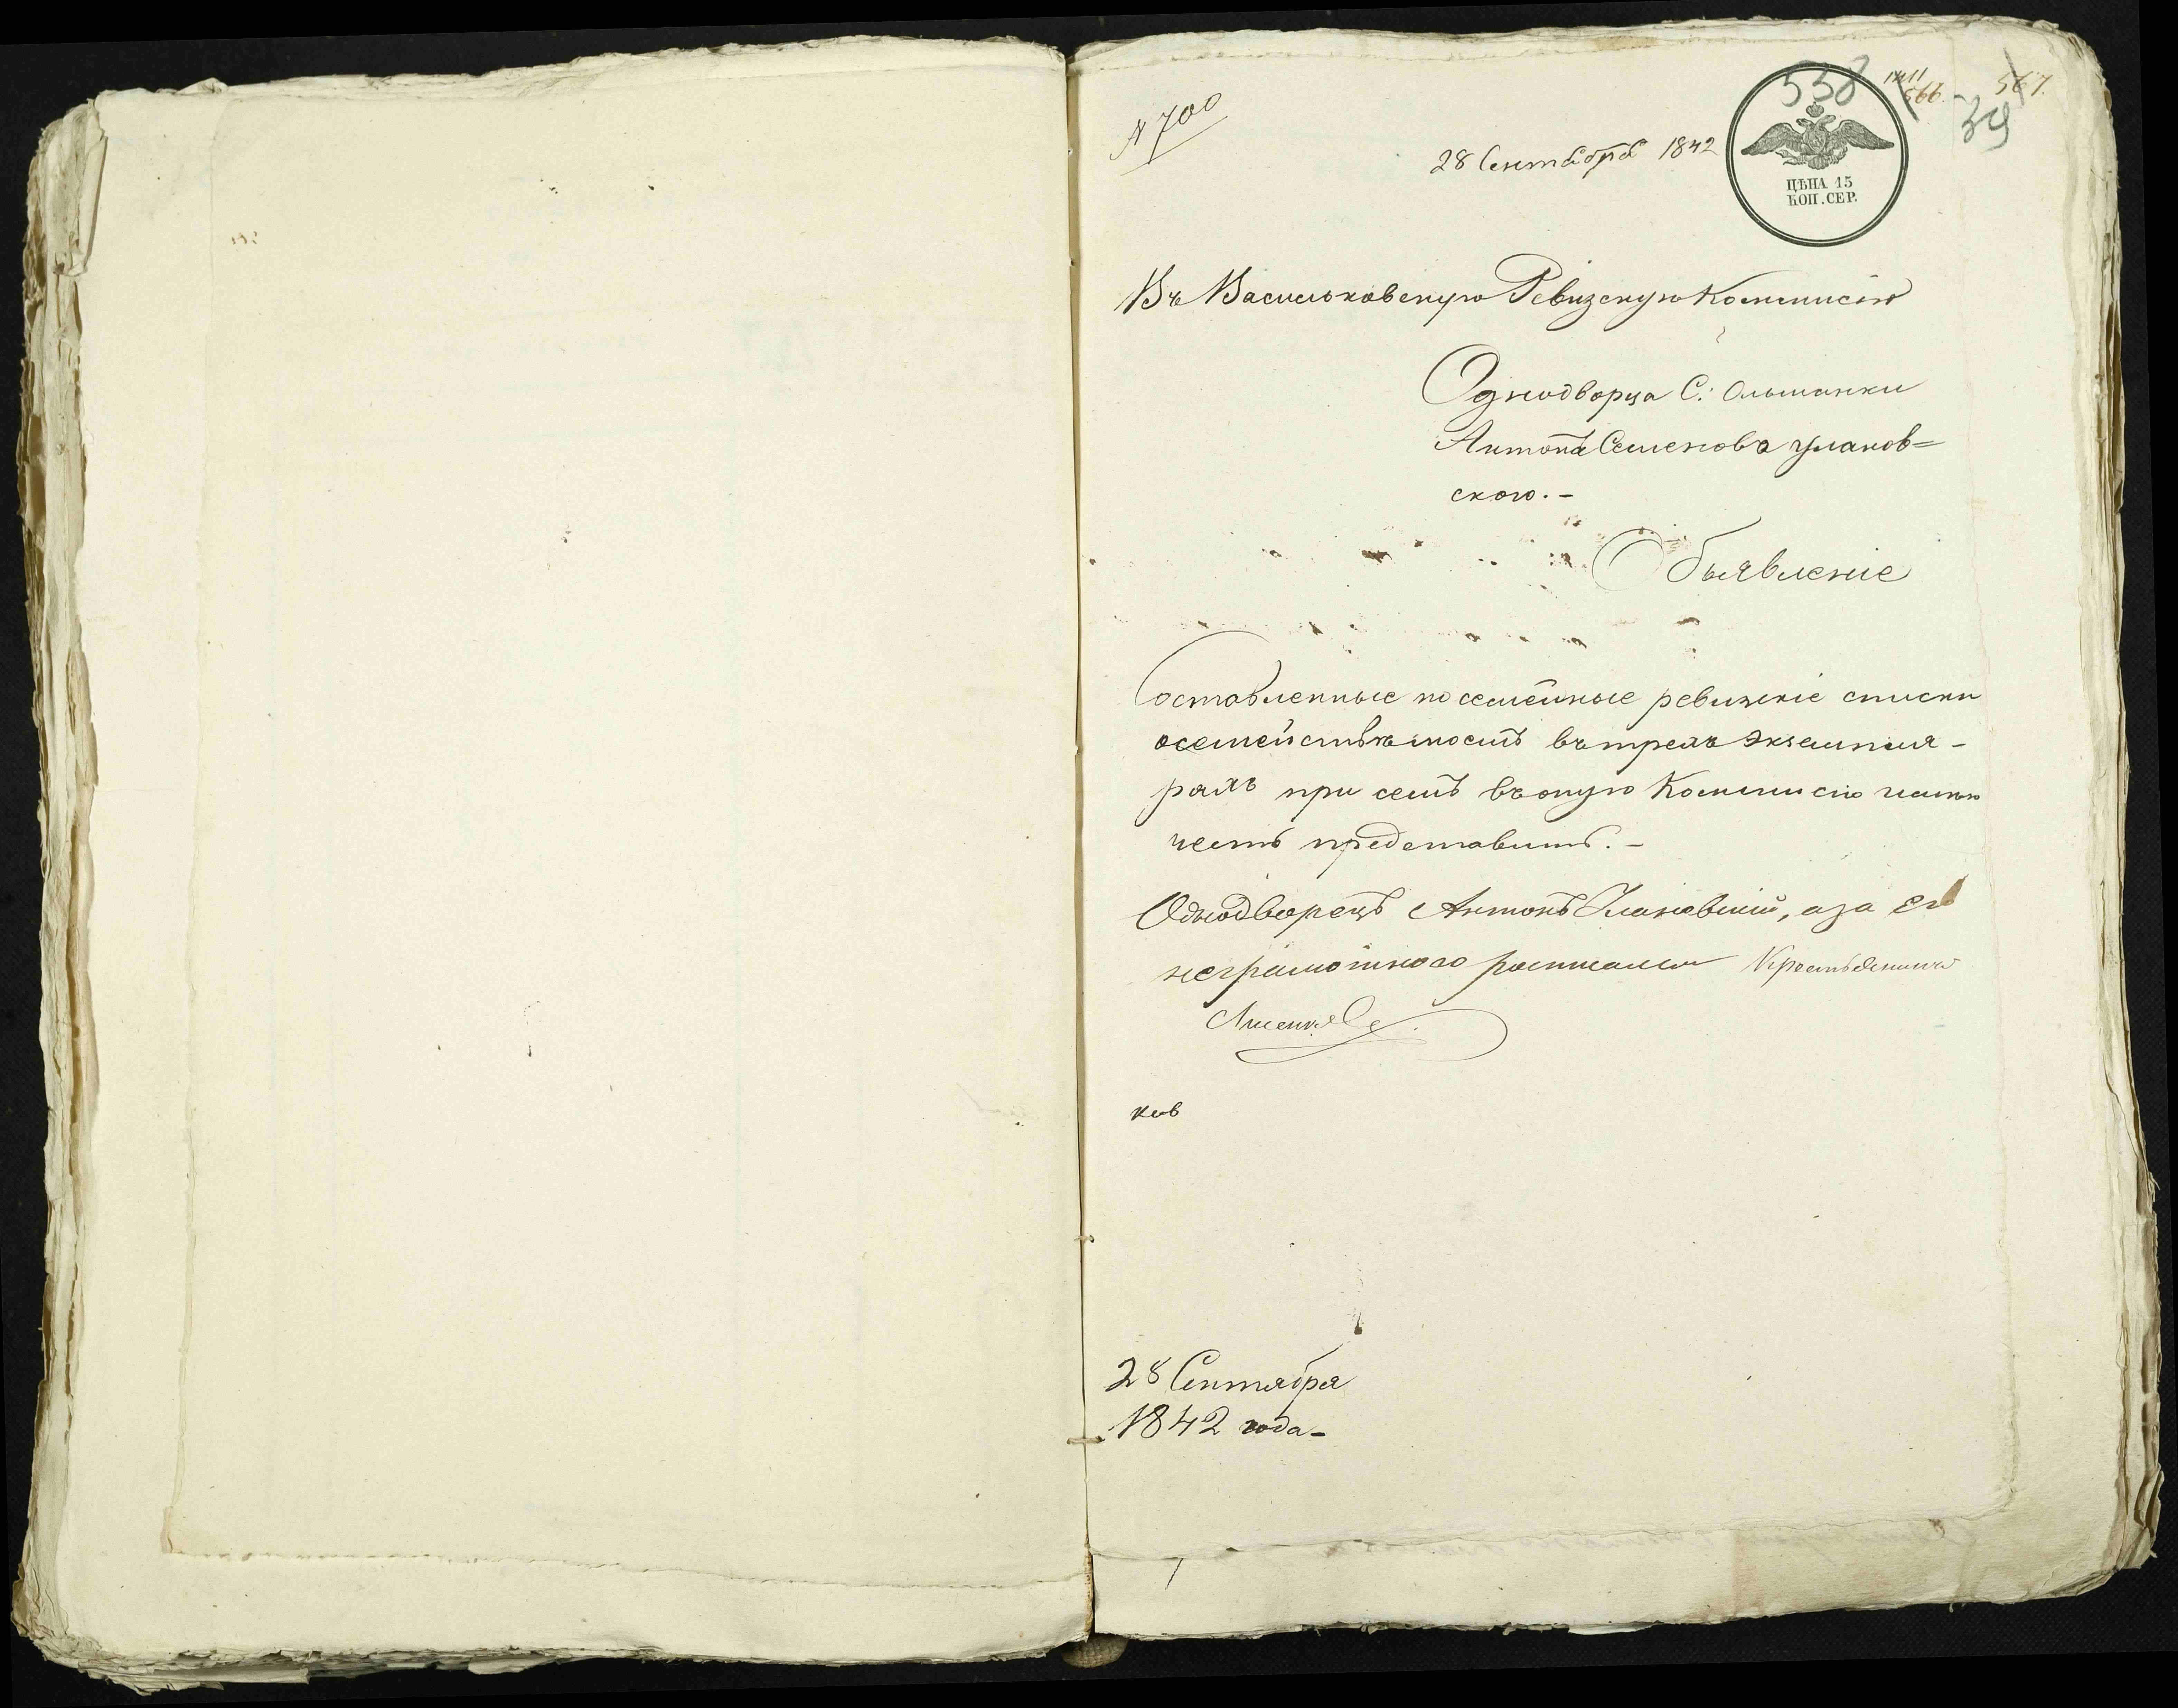 N 700
28 Сентября 1842
558
566.
567.
39
ЦѢНА 15
КОП. СЕР.
Въ Васильковскую Ревизскую Коммисію
Однодворца С: Ольшанки
Антона Семенова Улановъ=
ского.-
Объявленіе
Составленные посемейные ревизскіе списки
осемействѣ моемъ въ трехъ Экземпля-
рахъ при семъ въ оную Коммисію имѣю
честь представить.-
Однодворецъ Антонъ Улановскій, а за его
неграмотного росписался Крестьянинъ
ков
28 Сентября
1842 года-